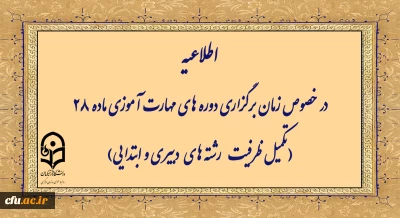 اطلاعیه
در خصوص زمان برگزاری دوره های مهارت آموزی ماده ۲۸
(تکمیل ظرفیت رشته های دبیری و ابتدایی)
دانشگاه فرهنگیان
cfu.ac.ir